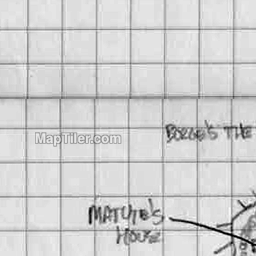 MapTiler.com
BORGE'S THE
MATUTE'S
HOUSE